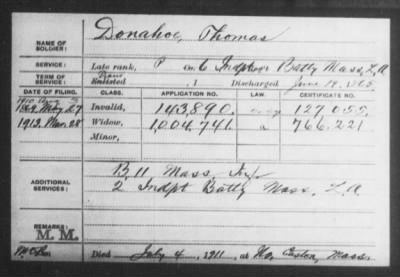 NAME OF SOLDIER: Donahoe, Thomas
SERVICE: Late rank, P Co. 6 Indpt Batty Mass. L.A.
TERM OF SERVICE: Enlisted , 1 Discharged June 19, 1865
DATE OF FILING. CLASS. APPLICATION NO. LAW. CERTIFICATE NO.
May 27 Invalid, 143,890. 127.055.
1912. Mar. 28 Widow, 1,004,741. a 766.221
Minor,
ADDITIONAL SERVICES: B, 11 Mass. Inf
2 Indpt Batty Mass. L.A.
REMARKS:
M. M.
Died July 4, 1911, at No. Easton, Mass.